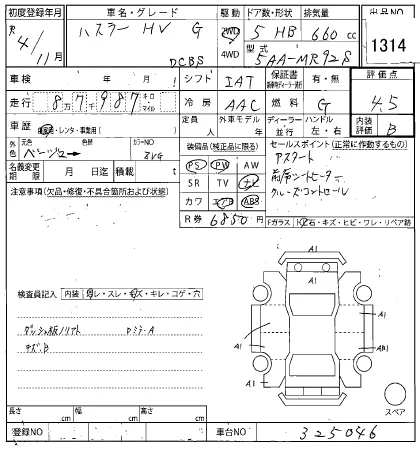 初度登録年月 車名・グレード 駆動 ドア数・形状 排気量 出品NO
R4/11月 ハスラー HV G 2WD 5 HB 660cc 1314
DCBS 4WD 型式 5AA-MR92S
車検 年 月 シフト IAT 保証書 有・無 評価点
走行 87987 キロ マイル 冷房 AAC 燃料 G 4.5
車歴 自家用・レンタ・事業用( ) 定員 人 外車モデル 年 ディーラー 並行 ハンドル 左・右 内装評価 B
外色 元色 ベージュー 色替 カラーNO ZVG
装備品(純正品に限る) セールスポイント(正常に作動するもの)
名義変更期限 月 日迄 積載 t
PS PW AW アスタート
SR TV ナビ 前席シートヒーター
カワ エアB ABS クルーズコントロール
注意事項(欠品・修復・不具合箇所および状態)
R券 6850円 Fガラス 石・キズ・ヒビ・ワレ・リペア跡
A1
A1
A1
A1
検査員記入 内装 スレ・キズ・キレ・コゲ・穴
ダッシュ板ノリアト DミラーA
キズB
A1
A1
スペア
長さ cm 幅 cm 高さ cm
登録NO 車台NO 325046